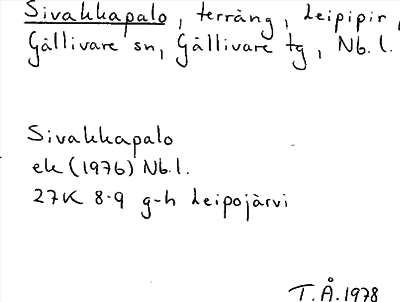 Sivakkapalo, terräng, Leipipir,
Gällivare sn, Gällivare tg, Nb.l.
Sivakkapalo
ek (1976) Nb.l.
27K 8-9 g-h Leipojärvi
T.Å.1978